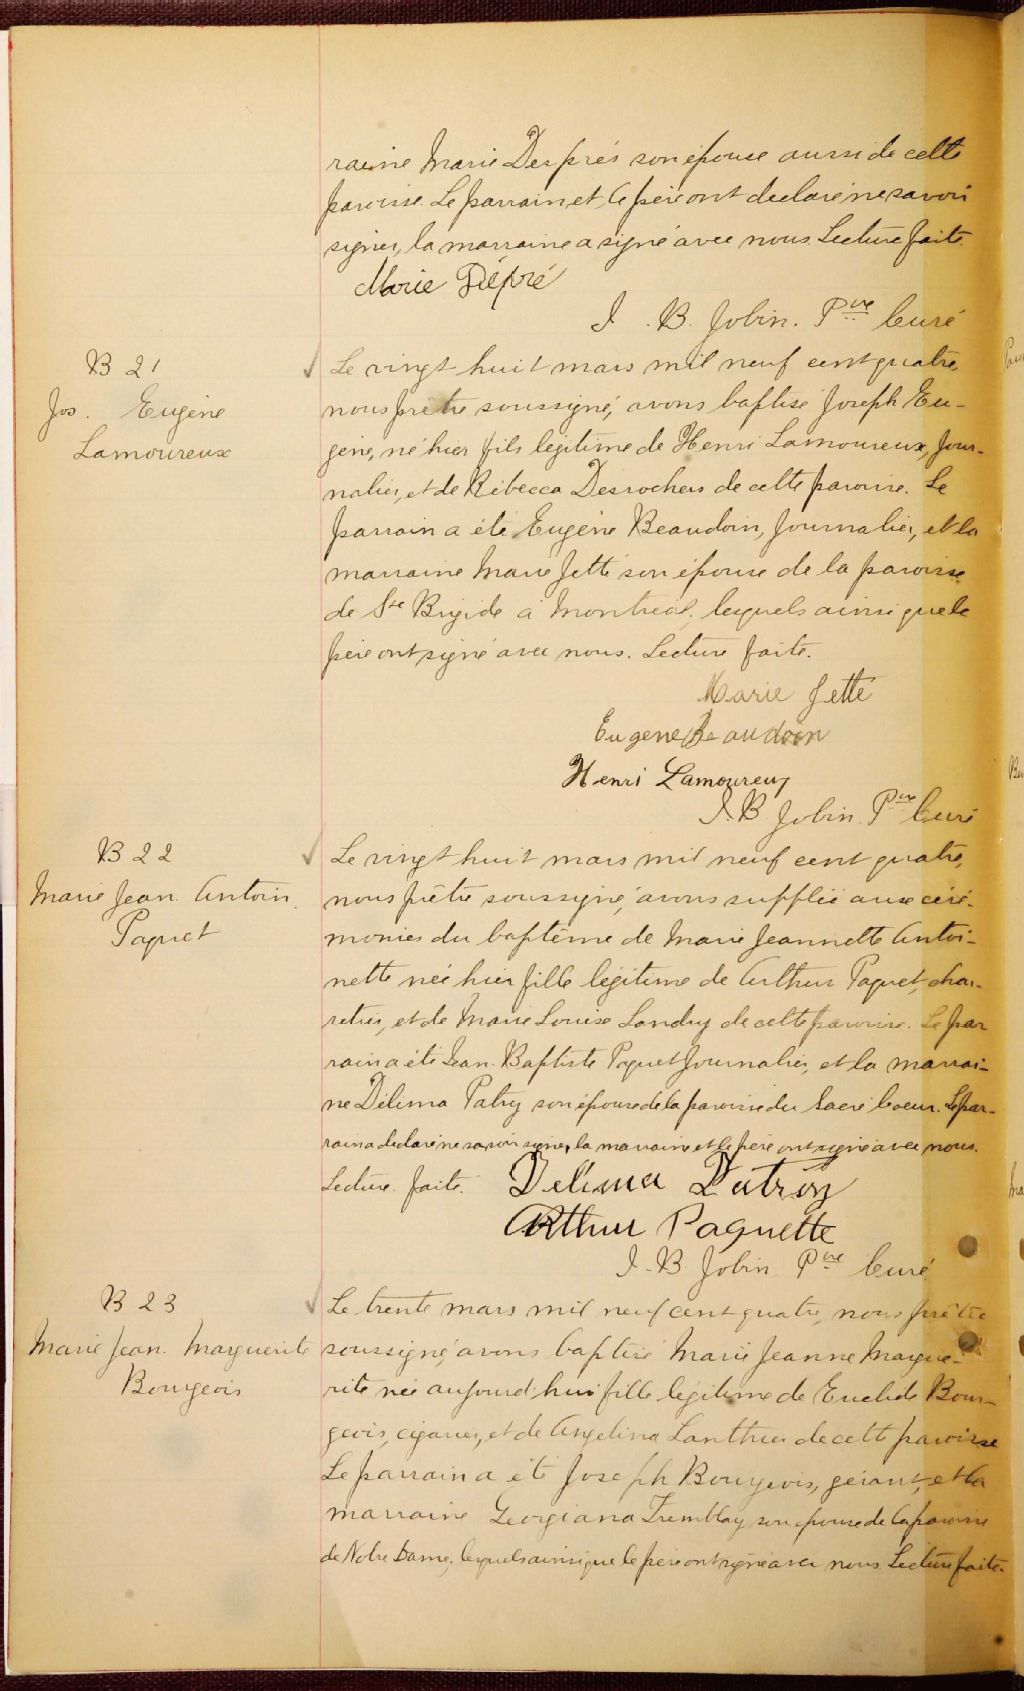 raine Marie Desprès son épouse aussi de cette
paroisse. Le parrain et le père ont declaré ne savoir
signer, la marraine a signé avec nous. Lecture faite.
Marie Dépré
J. B. Jobin. Ptre Curé
B 21
Jos. Eugène
Lamoureux
Le vingt huit mars mil neuf cent quatre,
nous prêtre soussigné, avons baptisé Joseph Eu-
gène, né hier fils légitime de Henri Lamoureux, jour-
nalier, et de Rébecca Desrochers de cette paroisse. Le
parrain a été Eugène Beaudoin, journalier, et la
marraine Marie Jetté son épouse de la paroisse
de Ste Brigide à Montréal, lesquels ainsi que le
père ont signé avec nous. Lecture faite.
Marie Jetté
Eugene Beaudoin
Henri Lamoureux
J. B. Jobin Ptre Curé
B 22
Marie Jean. Antoin.
Paquet
Le vingt huit mars mil neuf cent quatre,
nous prêtre soussigné, avons supplié aux céré-
monies du baptême de Marie Jeannette Antoi-
nette née hier fille légitime de Arthur Paquet, char-
retier, et de Marie Louise Landry de cette paroisse. Le par
rain a été Jean-Baptiste Paquet journalier, et la marrai-
ne Délima Patry son épouse de la paroisse du Sacré Coeur. Le par-
rain a declaré ne savoir signer, la marraine et le père ont signé avec nous.
Lecture faite.
Délima Patry
Arthur Paquette
J. B. Jobin Ptre Curé
B 23
Marie Jean. Marguerite
Bourgeois
Le trente mars mil neuf cent quatre, nous prêtre
soussigné, avons baptisé Marie Jeanne Margue-
rite née aujourd'hui fille légitime de Euclide Bour-
geois, cigarier, et de Angelina Lanthier de cette paroisse
Le parrain a été Joseph Bourgeois, gérant, et la
marraine Georgiana Tremblay son épouse de la paroisse
de Notre Dame, lesquels ainsi que le père ont signé avec nous Lecture faite.